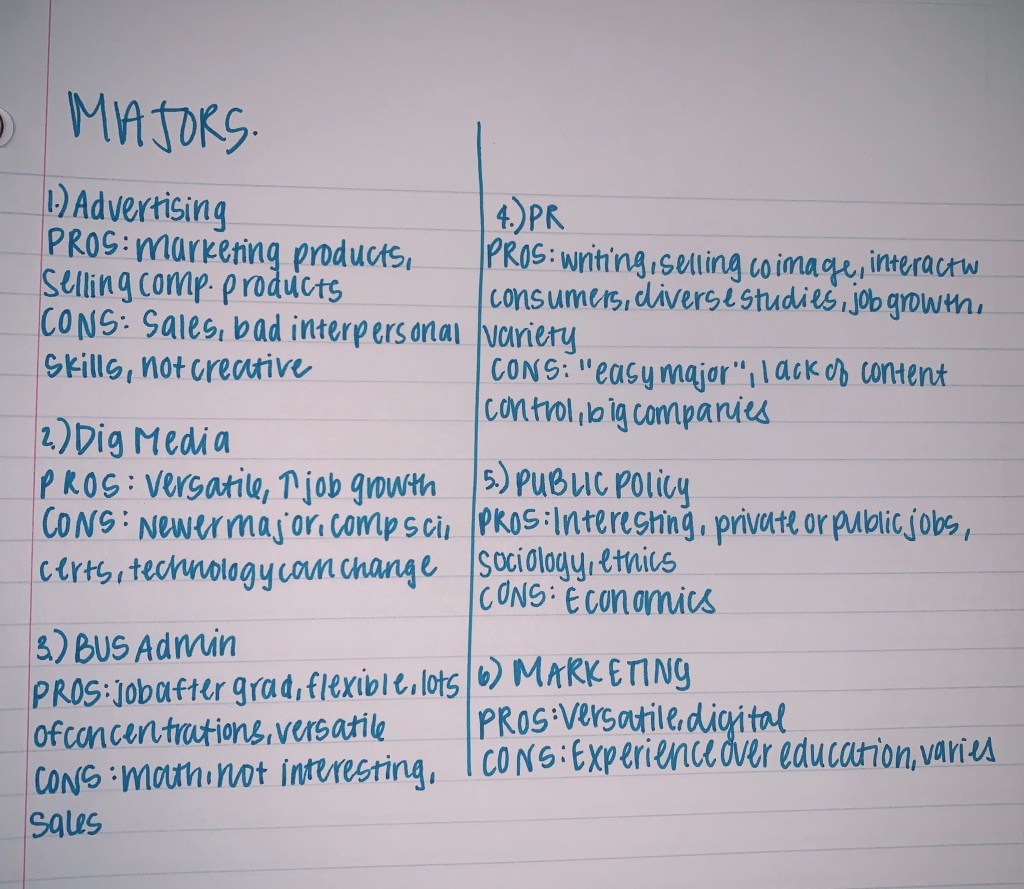 MAJORS.
1.) Advertising
PROS: marketing products,
selling comp. products
CONS: Sales, bad interpersonal
skills, not creative
2.) Dig Media
PROS: versatile, ↑ job growth
CONS: Newer major, comp sci,
certs, technology can change
3.) BUS Admin
PROS: job after grad, flexible, lots
of concentrations, versatile
CONS: math, not interesting,
sales
4.) PR
PROS: writing, selling co image, interact w
consumers, diverse studies, job growth,
variety
CONS: "easy major", lack of content
control, big companies
5.) PUBLIC POLICY
PROS: Interesting, private or public jobs,
sociology, ethics
CONS: Economics
6) MARKETING
PROS: Versatile, digital
CONS: Experience over education, varies